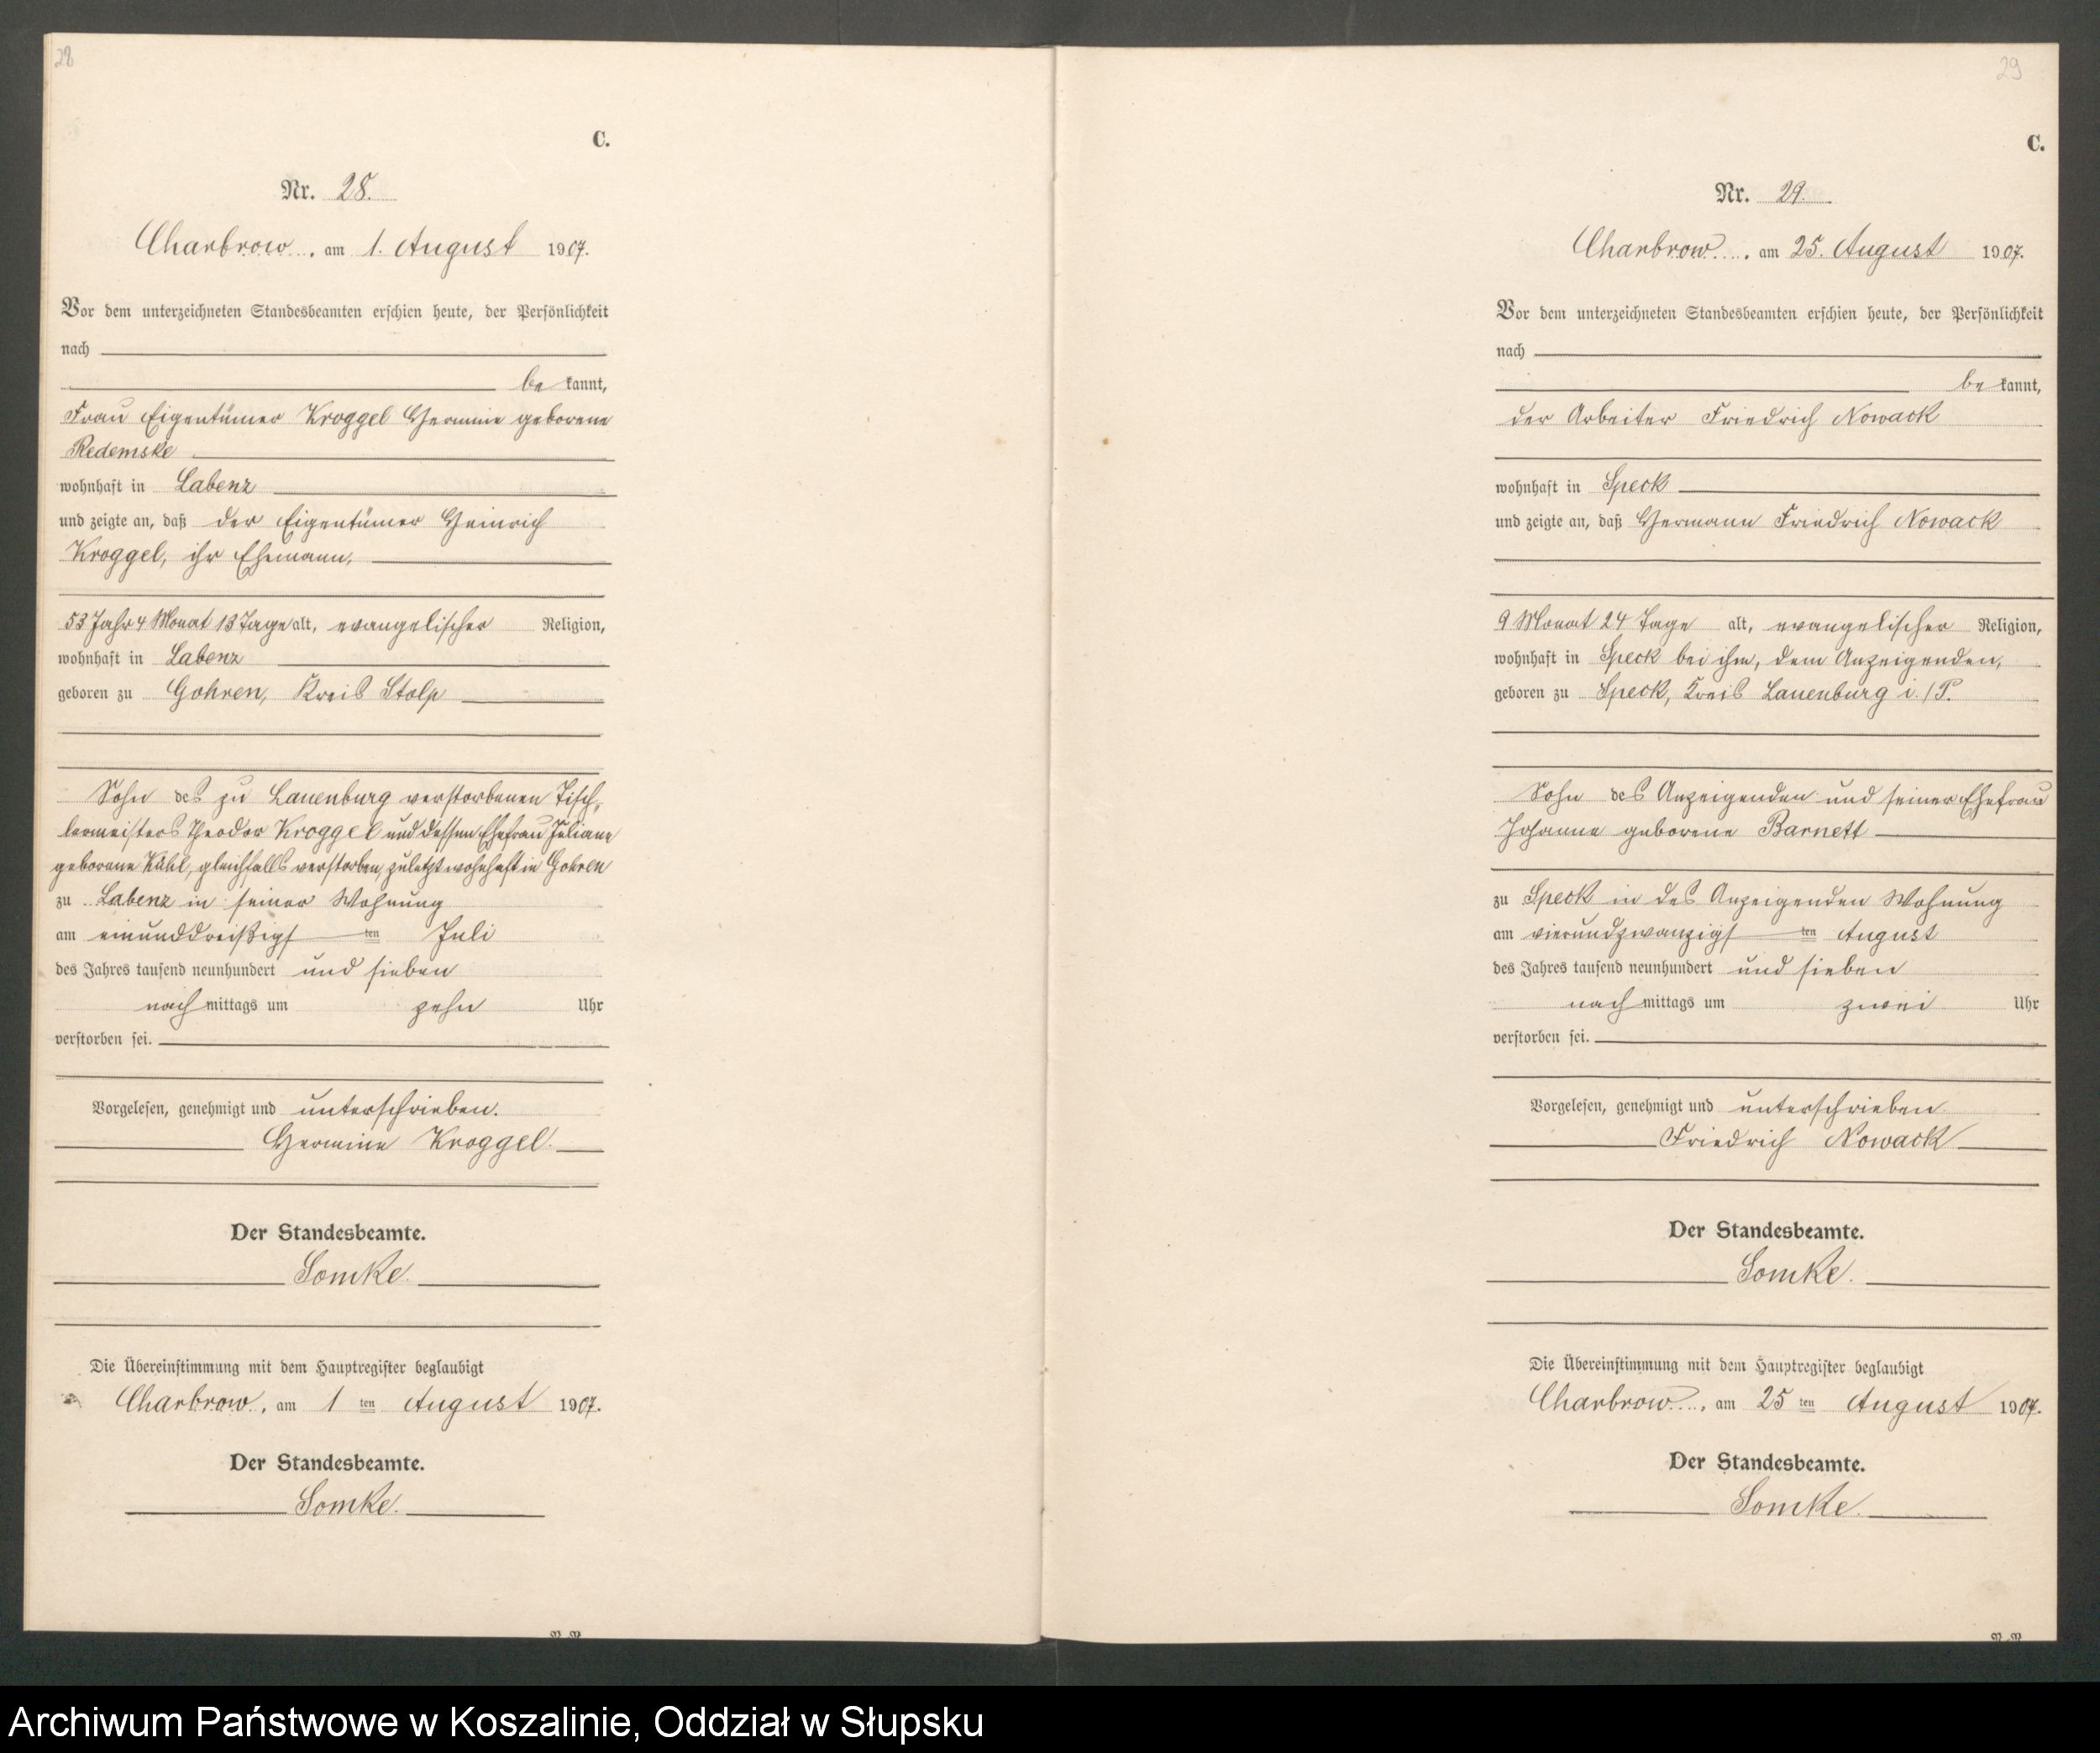 28
C.
Nr. 28.
Charbrow, am 1. August 1907.
Vor dem unterzeichneten Standesbeamten erschien heute, der Persönlichkeit
nach
be kannt,
Frau Eigentümer Kroggel Hermine geborene
Redemske
wohnhaft in Labenz
und zeigte an, daß der Eigentümer Heinrich
Kroggel, ihr Ehemann,
53 Jahr 4 Monat 13 Tage alt, evangelischer Religion,
wohnhaft in Labenz
geboren zu Gohren, Kreis Stolp
Sohn des zu Lauenburg verstorbenen Tisch-
lermeisters Theodor Kroggel und dessen Ehefrau Juliane
geborene Kühl, gleichfalls verstorben, zuletzt wohnhaft in Gohren
zu Labenz in seiner Wohnung
am einunddreißigsten Juli
des Jahres tausend neunhundert und sieben
nachmittags um zehn Uhr
verstorben sei.
Vorgelesen, genehmigt und unterschrieben.
Hermine Kroggel.
Der Standesbeamte.
Somke.
Die Übereinstimmung mit dem Hauptregister beglaubigt
Charbrow, am 1 ten August 1907.
Der Standesbeamte.
Somke.
29
C.
Nr. 29.
Charbrow, am 25. August 1907.
Vor dem unterzeichneten Standesbeamten erschien heute, der Persönlichkeit
nach
be kannt,
der Arbeiter Friedrich Nowack
wohnhaft in Speck
und zeigte an, daß Hermann Friedrich Nowack
9 Monat 24 Tage alt, evangelischer Religion,
wohnhaft in Speck bei ihm, dem Anzeigenden,
geboren zu Speck, Kreis Lauenburg i./P.
Sohn des Anzeigenden und seiner Ehefrau
Johanna geborene Barnett
zu Speck in des Anzeigenden Wohnung
am vierundzwanzigsten August
des Jahres tausend neunhundert und sieben
nachmittags um zwei Uhr
verstorben sei.
Vorgelesen, genehmigt und unterschrieben
Friedrich Nowack
Der Standesbeamte.
Somke.
Die Übereinstimmung mit dem Hauptregister beglaubigt
Charbrow, am 25 ten August 1907.
Der Standesbeamte.
Somke.
Archiwum Państwowe w Koszalinie, Oddział w Słupsku